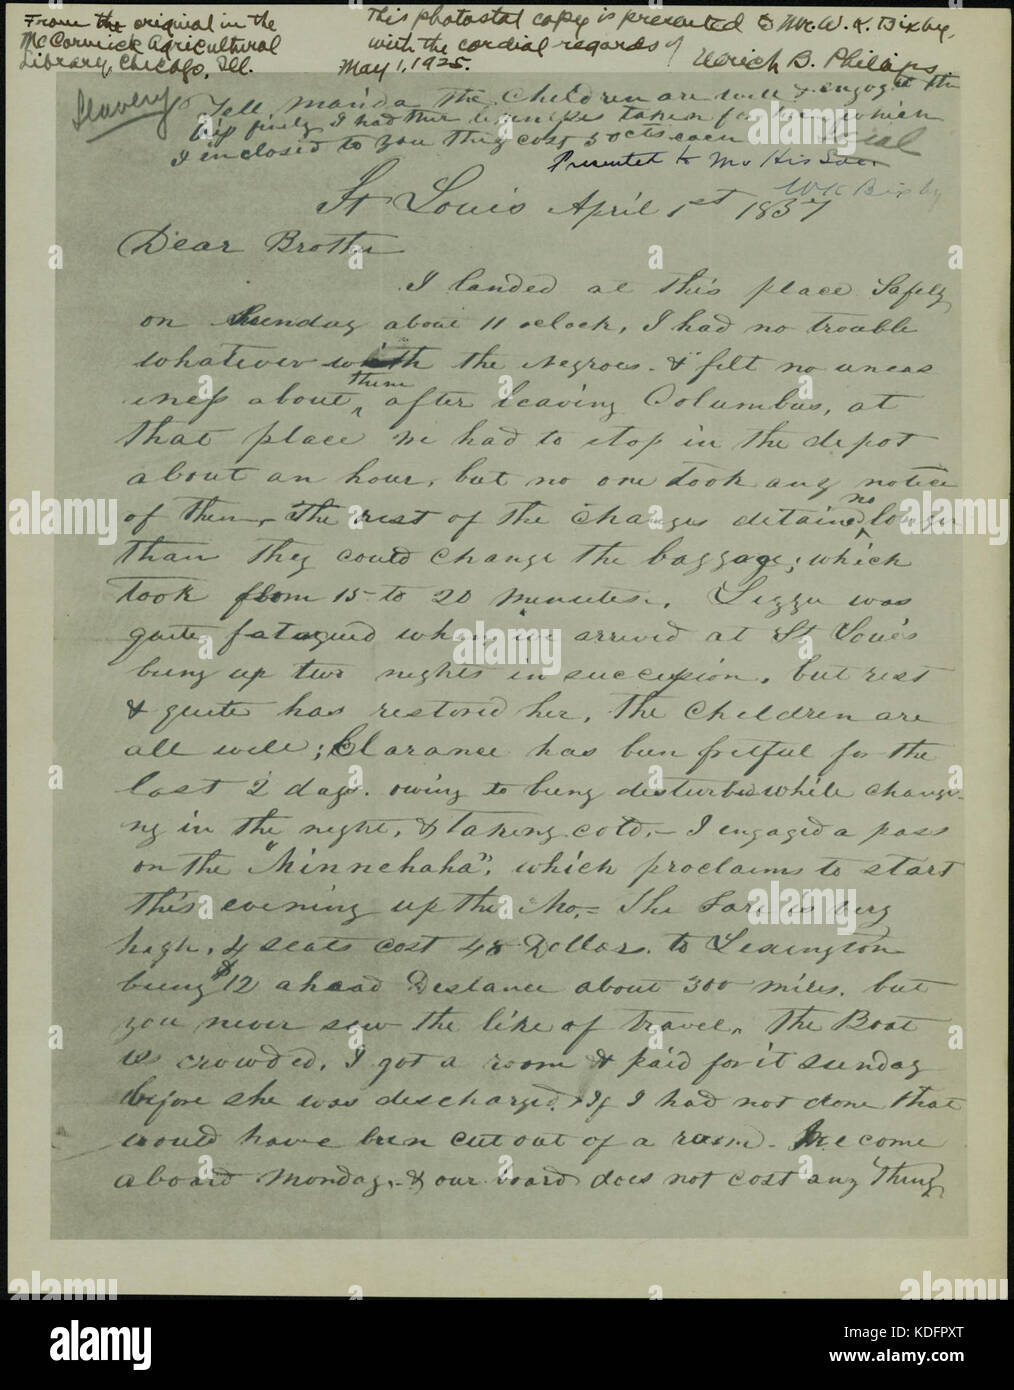 From the original in the
McCormick Agricultural
Library, Chicago, Ill.
This photostat copy is presented to Mr. W. K. Bixby,
with the cordial regards of
May 1, 1925. Ulrich B. Phillips
Slavery
Tell Manda the Children are well & enjoy the
trip finely I had their taken for you which
I inclosed to you they cost 50 cts each
Presented to Mo His Soc.
W K Bixby
St Louis April 1st 1857
Dear Brother
I landed at this place Safely
on Sunday about 11 oclock, I had no trouble
whatever with the Negroes. & felt no uneas
iness about them after leaving Columbus, at
that place we had to stop in the depot
about an hour, but no one took any notice
of them, The rest of the changes detained no longer
than they could change the baggage; which
took from 15 to 20 minutes. Lizzie was
quite fatagued when we arrived at St Louis
being up two nights in succession, but rest
& quite has restored her, The Children are
all well; Clarance has been fretful for the
last 2 days. owing to being desturbed while chang-
ng in the night, & taking cold, - I engaged a pass
on the "Minnehaha", which proclaims to start
this evening up the Mo,= The Fare is very
high, 4 seats cost 48 Dollars. to Lexington
being $12 ahead Destance about 300 miles. but
you never saw the like of travel, The Boat
is crowded. I got a room & paid for it Sunday
before she was descharged. If I had not done that
would have been cut out of a room. We come
aboard Monday, & our board does not cost any thing
alamy
alamy
Image ID: KDFPXT
www.alamy.com